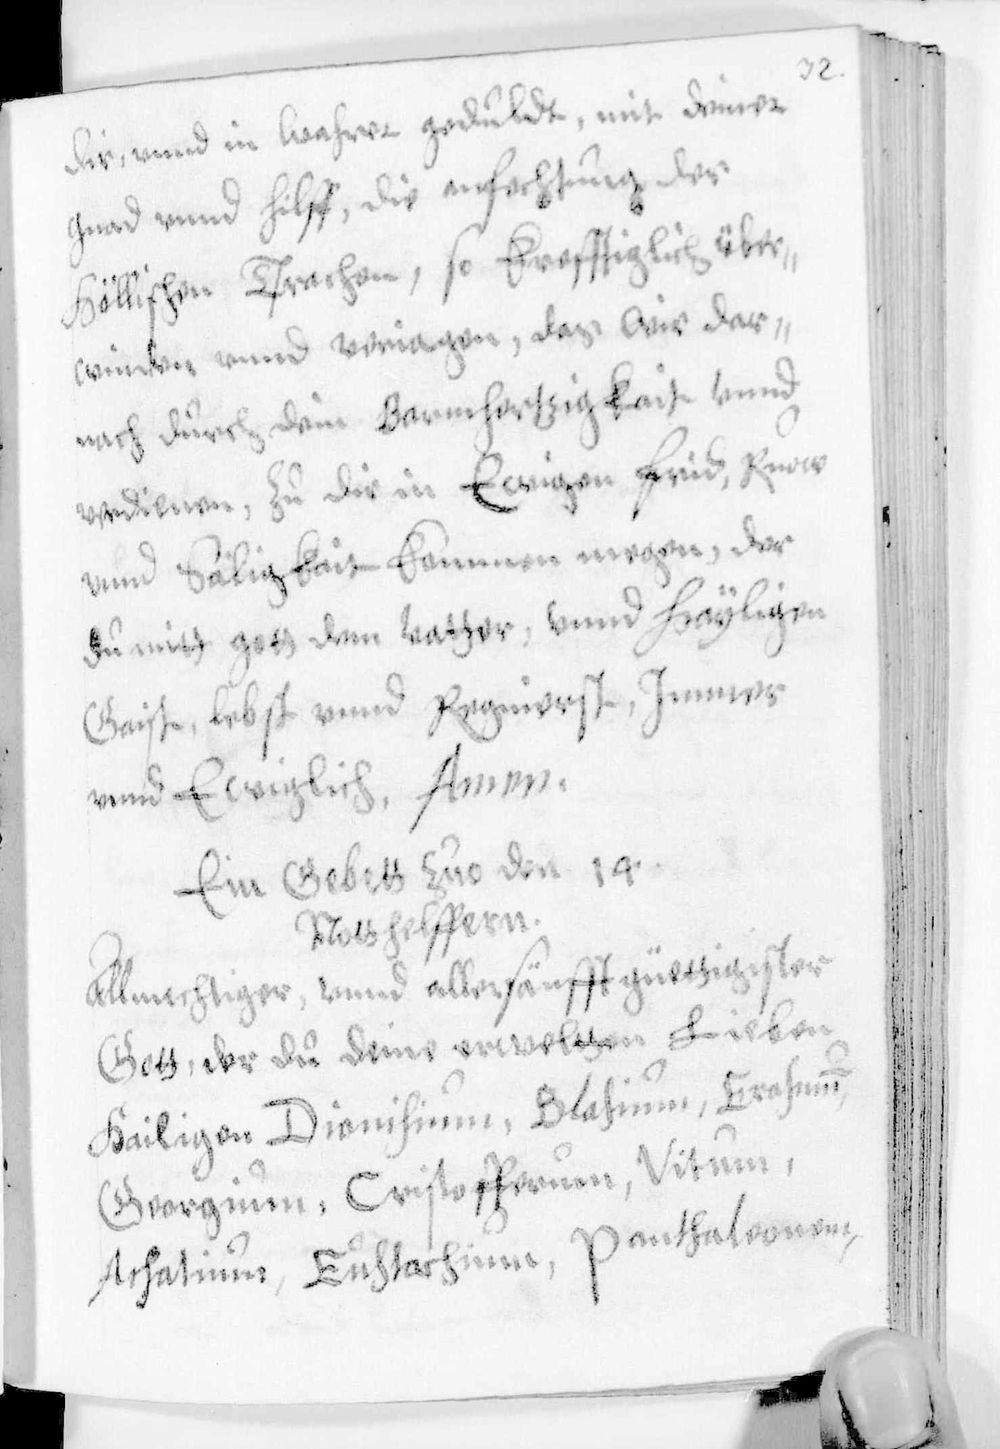 32.
dir, vnnd in wahrer gedůldt, mit deiner
gnad vnnd hilff, die anfechtůng der
Höllischen Trachen, so krefftiglich über„
winden vnnd veriagen, das wir dar„
nach důrch dein Barmhertzigkait vnnd
verdienen, zů dir in Ewigen frid, Ruow
vnnd Säligkait kommen megen, der
dů mitt gott dem vatter, vnnd Hayligen
Gaist, lebst vnnd Regnierst, Immer
vnnd Ewiglich, Amen.
Ein Gebett zůo den 14.
Notthelffern.
Allmechtiger, vnnd allersänfftgüettigister
Gott, der dů deine erwelten Lieben
Hailigen Dionisiům, Blasiům, Erasmů̄,
Georgiům, Cristofferům, Vitům,
Achatiům, Eůstachiům, Panthaleonem,